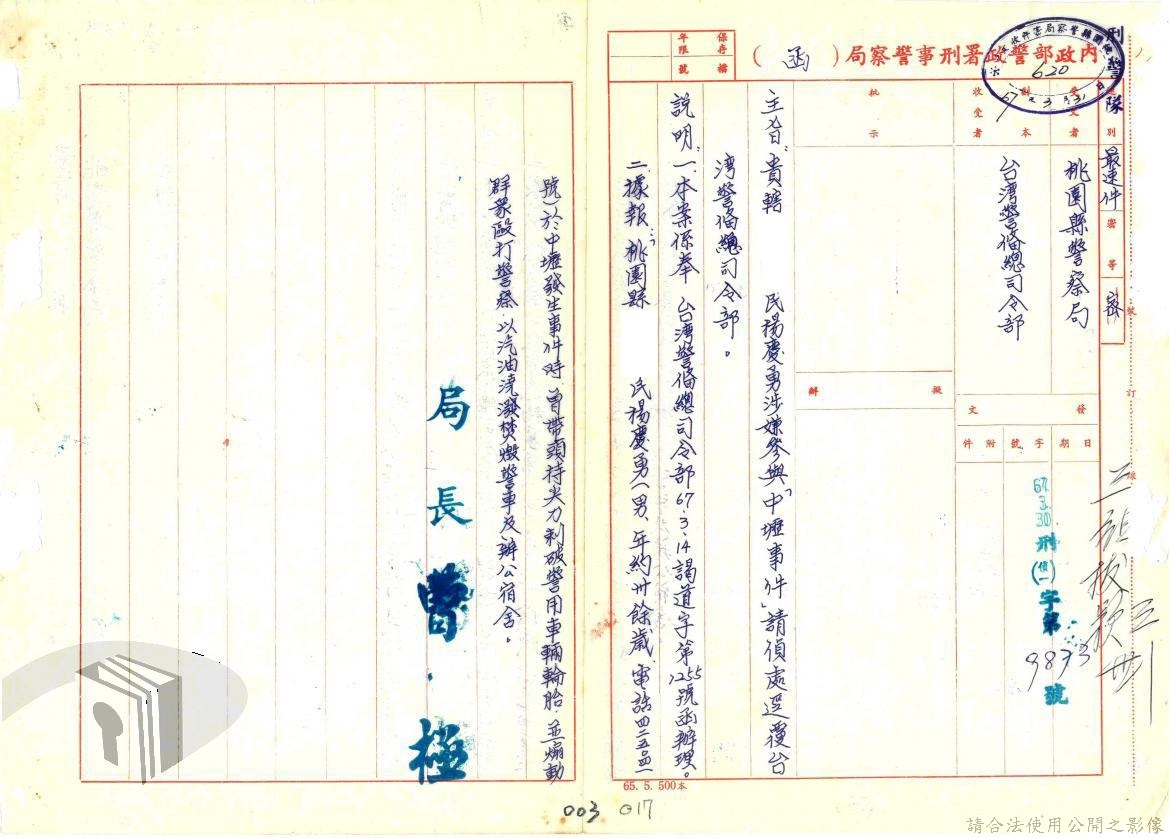 內政部警政署刑事警察局（函）
保存年限
檔號
刑警隊
速別
最速件
密等
密
受文者
桃園縣警察局
副本收受者
台灣警備總司令部
批示
擬辦
發文
日期
字號
附件
67.3.30刑(偵一)字第9873號
620
67年3月31日
裝訂線
主旨：貴轄　民楊慶勇涉嫌參與「中壢事件」請偵處逕覆台
灣警備總司令部。
說明：一、本案係奉　台灣警備總司令部67.3.14謁道字第1255號函辦理。
二、據報：桃園縣　民楊慶勇（男、年約卅餘歲、電話四二五
號）於中壢發生事件時，曾帶頭持尖刀刺破警用車輛輪胎，並煽動
群眾毆打警察，以汽油澆潑焚燬警車及辦公宿舍。
局長曹極
65. 5. 500本
003 017
請合法使用公開之影像